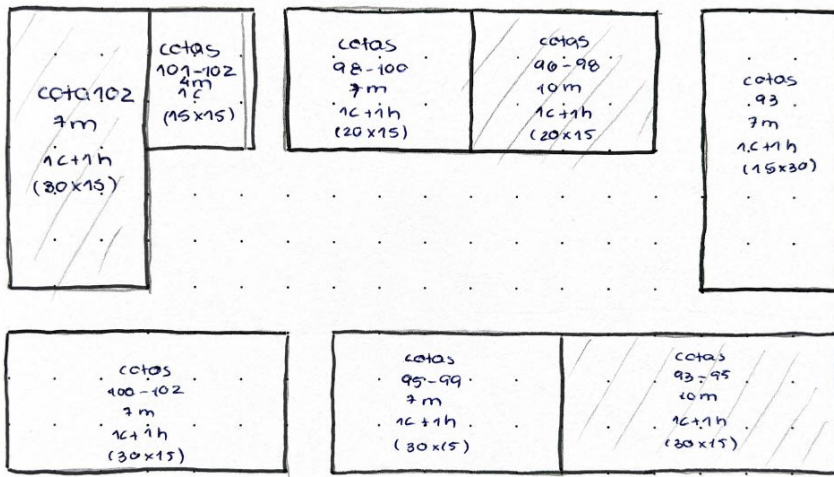 cota 102
7m
1c+1h
(30x15)
cotas
101-102
4m
1c
(15x15)
cotas
98-100
7m
1c+1h
(20x15)
cotas
96-98
10m
1c+1h
(20x15
cotas
93
7m
1c+1h
(15x30)
cotas
100-102
7m
1c+1h
(30x15)
cotas
95-99
7m
1c+1h
(30x15)
cotas
93-95
10m
1c+1h
(30x15)